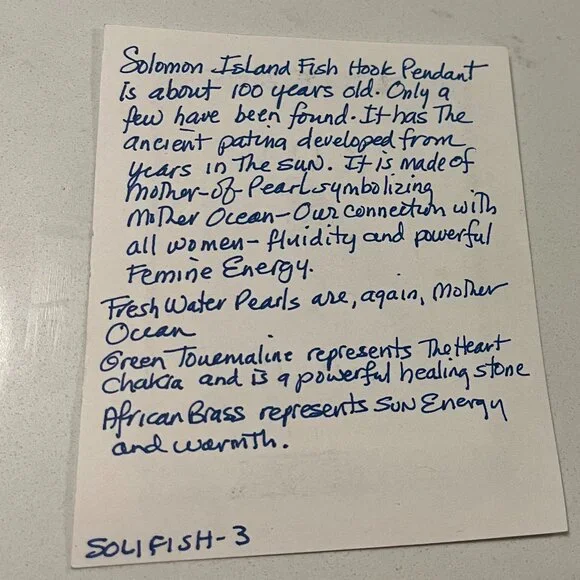 Solomon Island Fish Hook Pendant
is about 100 years old. Only a
few have been found. It has The
ancient patina developed from
years in The sun. It is made of
Mother-of-Pearl symbolizing
Mother Ocean - Our connection with
all women - fluidity and powerful
Femine Energy.
Fresh Water Pearls are, again, Mother
Ocean
Green Touemaline represents The Heart
Chakra and is a powerful healing stone
African Brass represents Sun Energy
and warmth.
SOLIFISH-3